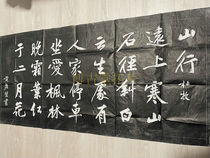 山行 杜牧
遠上寒山
石徑斜白
云生處有
人家停車
坐愛楓林
晚霜葉紅
于二月花